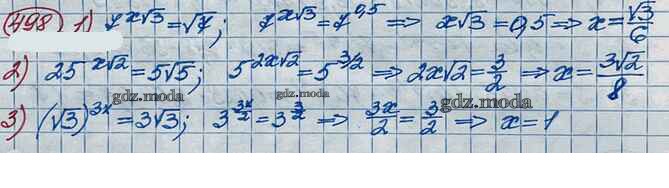 498 1) 7^{x√3} = √7; 7^{x√3} = 7^{0,5} ⇒ x√3 = 0,5 ⇒ x = √3/6
2) 25^{x√2} = 5√5; 5^{2x√2} = 5^{3/2} ⇒ 2x√2 = 3/2 ⇒ x = 3√2/8
gdz.moda gdz.moda gdz.moda
3) (√3)^{3x} = 3√3; 3^{3x/2} = 3^{3/2} ⇒ 3x/2 = 3/2 ⇒ x = 1